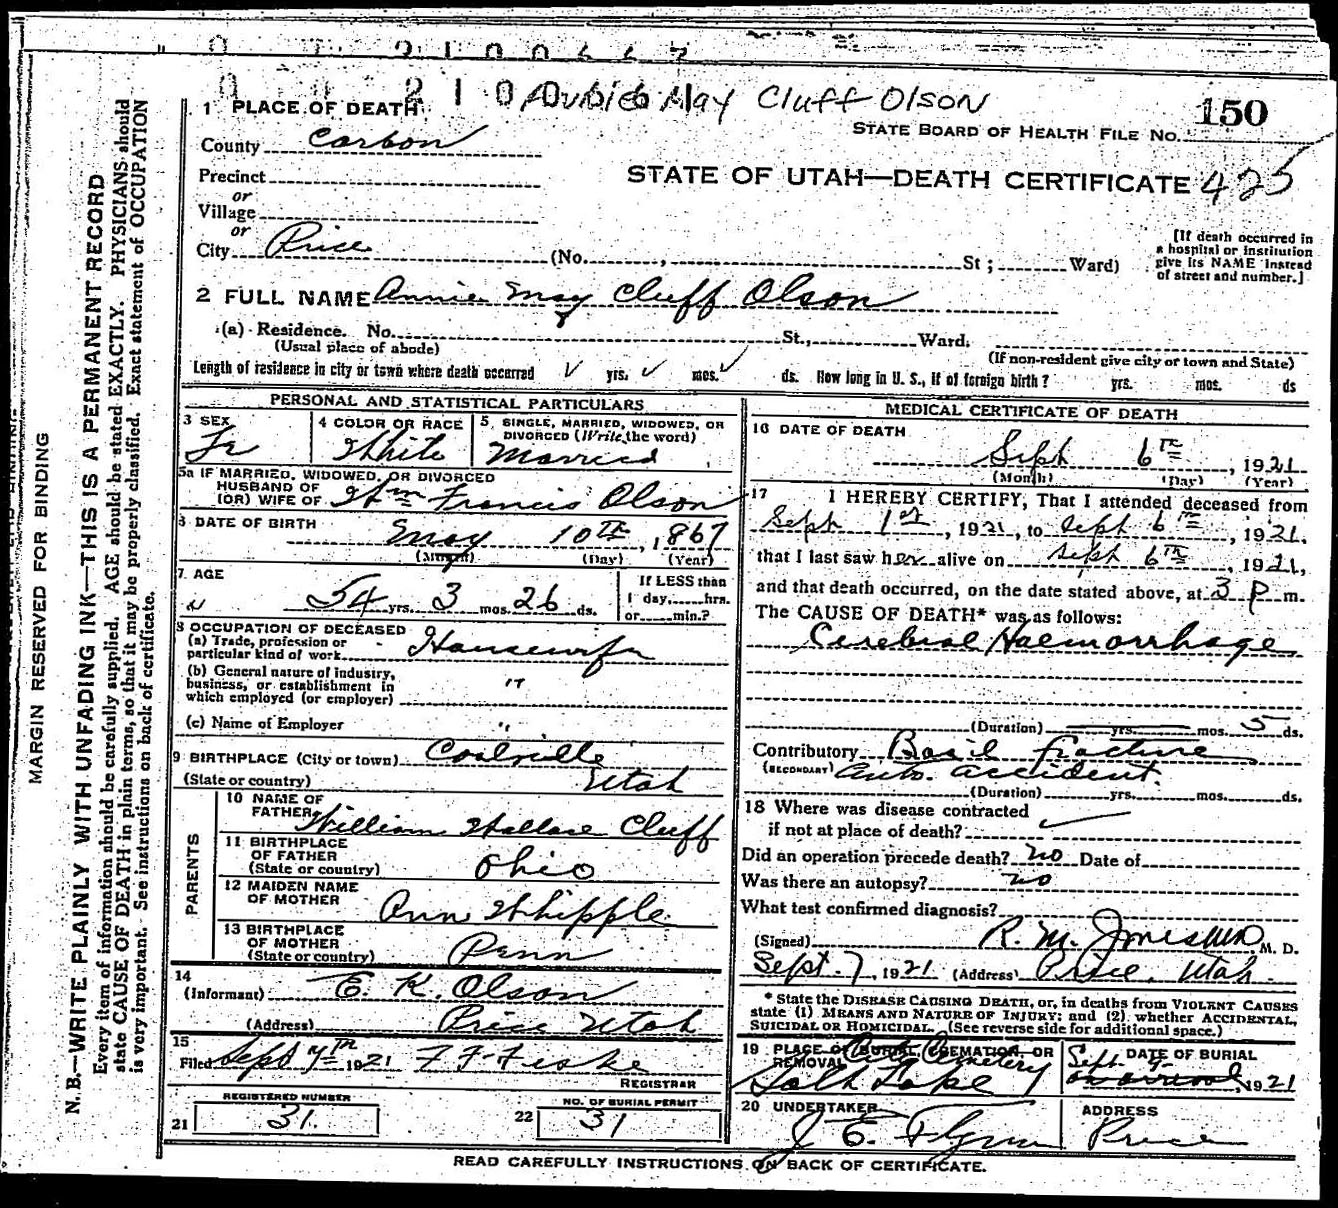 2 1 0 0 6 4 7
2 1 0 0 May Cluff Olson
150
1 PLACE OF DEATH
STATE BOARD OF HEALTH FILE No.
County Carbon
STATE OF UTAH—DEATH CERTIFICATE 425
Precinct
or
Village
or
City Price (No. , St ; Ward)
[If death occurred in
a hospital or institution
give its NAME instead
of street and number.]
2 FULL NAME Annie May Cluff Olson
(a) Residence. No. St., Ward.
(Usual place of abode)
(If non-resident give city or town and State)
Length of residence in city or town where death occurred yrs. mos. ds. How long in U. S., if of foreign birth? yrs. mos. ds
PERSONAL AND STATISTICAL PARTICULARS
3 SEX
Fe
4 COLOR OR RACE
White
5 SINGLE, MARRIED, WIDOWED, OR
DIVORCED (Write the word)
Married
5a IF MARRIED, WIDOWED, OR DIVORCED
HUSBAND OF
(OR) WIFE OF Wm Francis Olson
6 DATE OF BIRTH
May 10TH, 1867
(Month) (Day) (Year)
7. AGE
54 yrs. 3 mos. 26 ds.
If LESS than
1 day, hrs.
or min.?
8 OCCUPATION OF DECEASED
(a) Trade, profession or
particular kind of work Housewife
(b) General nature of industry,
business, or establishment in
which employed (or employer) "
(c) Name of Employer "
9 BIRTHPLACE (City or town) Coalville
(State or country) Utah
PARENTS
10 NAME OF
FATHER William Wallace Cluff
11 BIRTHPLACE
OF FATHER
(State or country) Ohio
12 MAIDEN NAME
OF MOTHER Ann Whipple
13 BIRTHPLACE
OF MOTHER
(State or country) Penn
14
(Informant) E. K. Olson
(Address) Price Utah
15
Filed Sept 7TH 1921 F F Fiske
REGISTRAR
REGISTERED NUMBER
21 31.
NO. OF BURIAL PERMIT
22 31
MEDICAL CERTIFICATE OF DEATH
16 DATE OF DEATH
Sept 6TH, 1921
(Month) (Day) (Year)
17 I HEREBY CERTIFY, That I attended deceased from
Sept 1st, 1921, to Sept 6TH, 1921.
that I last saw her alive on Sept 6TH, 1921,
and that death occurred, on the date stated above, at 3 P m.
The CAUSE OF DEATH* was as follows:
Cerebral Haemorrhage
(Duration) yrs. mos. 5 ds.
Contributory Basil fracture
(SECONDARY) Auto. accident.
(Duration) yrs. mos. ds.
18 Where was disease contracted
if not at place of death?
Did an operation precede death? no Date of
Was there an autopsy? no
What test confirmed diagnosis?
(Signed) R. M. Jones M. D.
Sept. 7, 1921 (Address) Price, Utah.
* State the DISEASE CAUSING DEATH, or, in deaths from VIOLENT CAUSES
state (1) MEANS AND NATURE OF INJURY; and (2) whether ACCIDENTAL,
SUICIDAL OR HOMICIDAL. (See reverse side for additional space.)
19 PLACE OF BURIAL, CREMATION, OR
REMOVAL City Cemetery
Salt Lake
DATE OF BURIAL
Sept 9-
on arrival, 1921
20 UNDERTAKER
J E. Flynn
ADDRESS
Price
READ CAREFULLY INSTRUCTIONS ON BACK OF CERTIFICATE.
MARGIN RESERVED FOR BINDING
N. B.—WRITE PLAINLY WITH UNFADING INK—THIS IS A PERMANENT RECORD
Every item of information should be carefully supplied. AGE should be stated EXACTLY. PHYSICIANS should
state CAUSE OF DEATH in plain terms, so that it may be properly classified. Exact statement of OCCUPATION
is very important. See instructions on back of certificate.